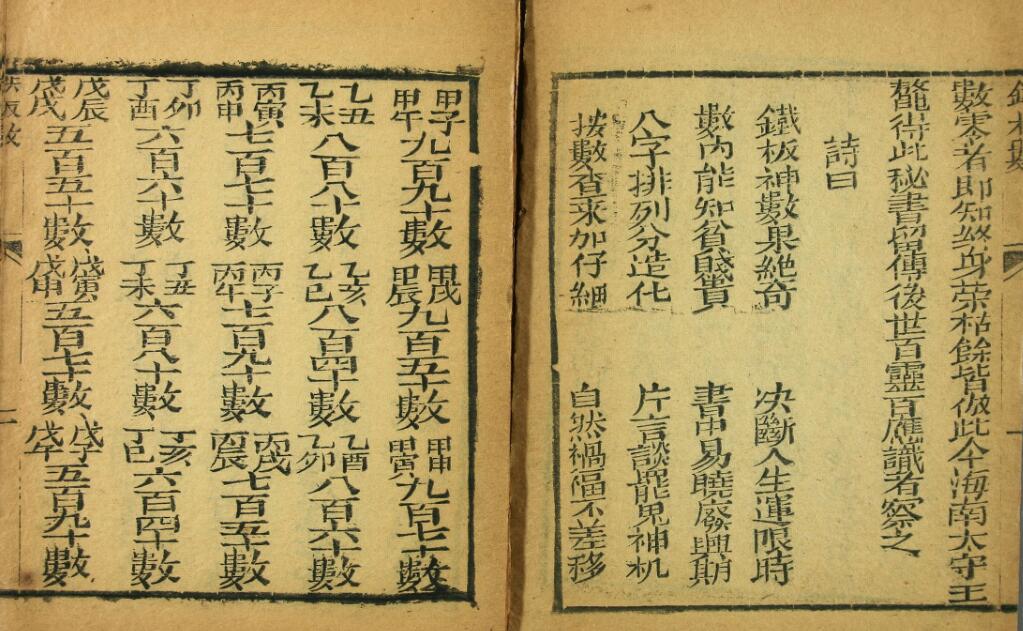 數零者即知終身荣枯餘皆倣此今海南太守王
鰲得此秘書留傳後世百靈百應識者察之
詩曰
鐵板神數果絶奇 决斷人生運限時
數内能知貧賤貴 書中易曉廢興期
八字排列分造化 片言談罷見神机
按數查来加仔細 自然禍福不差移
甲子甲午九百九十數 甲戌甲辰九百五十數 甲申甲寅九百七十數
乙丑乙未八百八十數 乙亥乙巳八百四十數 乙酉乙卯八百六十數
丙寅丙申七百七十數 丙子丙午七百九十數 丙戌丙辰七百五十數
丁卯丁酉六百六十數 丁丑丁未六百八十數 丁亥丁巳六百四十數
戊辰戊戌五百五十數 戊寅戊申五百七十數 戊子戊午五百九十數